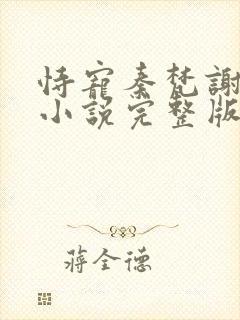 恃寵秦梵謝
小説完整版
蔣全德